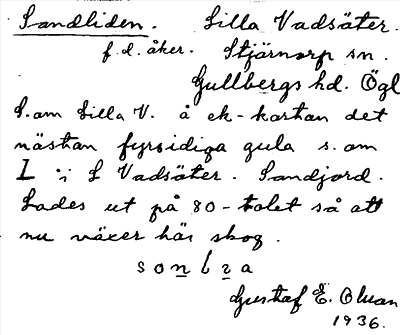 Sandliden. Lilla Vadsäter.
f.d. åker. Stjärnorp sn.
Gullbergs hd. Ögl
S.om Lilla V. å ek-kartan det
nästan fyrsidiga gula s.om
L i L Vadsäter. Sandjord.
Lades ut på 80-talet så att
nu växer här skog.
Gustaf E. Olsson
1936.